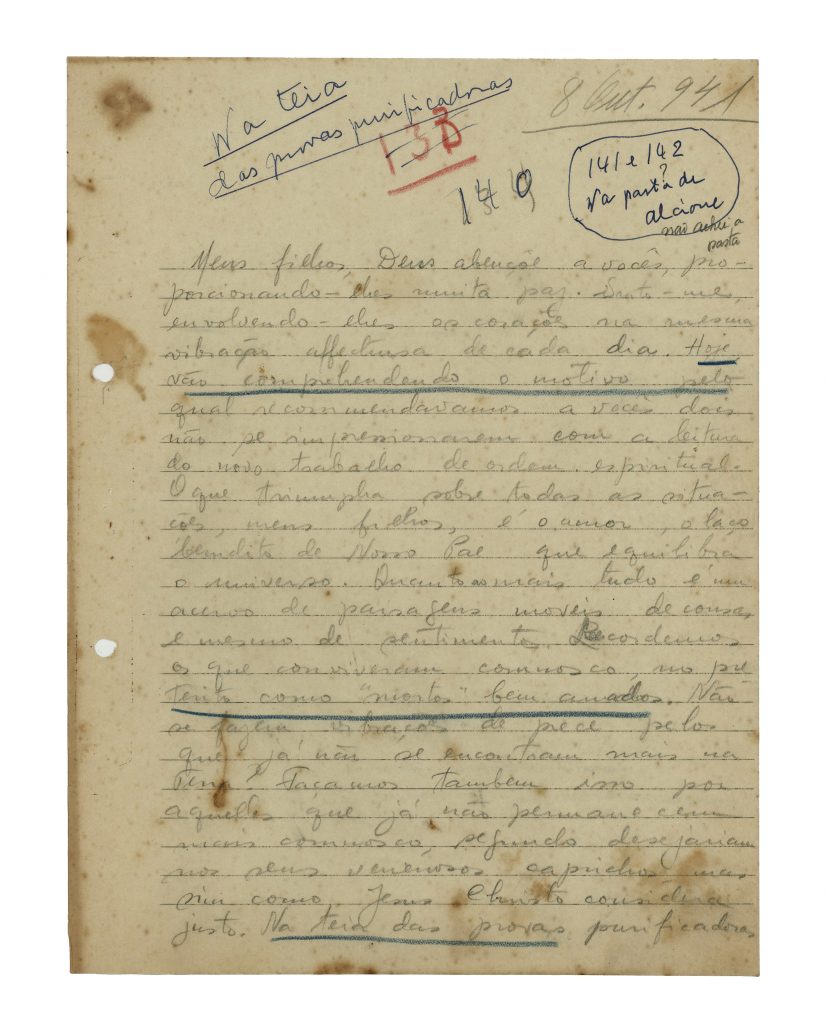 Na teia
das provas purificadoras
8 Out. 941
13B
140
141 e 142
?
Na pasta de
alcione
não achei a
pasta
Meus filhos, Deus abençôe a vocês, pro-
porcionando-lhes muita paz. Sinto-me,
envolvendo-lhes os corações na mesma
vibração affectuosa de cada dia. Hoje,
vão comprehendendo o motivo pelo
qual recommendavamos a vocês dois
não se impressionarem com a leitura
do novo trabalho de ordem espiritual.
O que triumpha sobre todas as situa-
ções, meus filhos, é o amor, o laço
bemdito de Nosso Pae que equilibra
o universo. Quanto ao mais tudo é um
acervo de paisagens moveis de cousas
e mesmo de sentimentos. Recordemos
os que conviveram comnosco, no pre
terito como "mortos" bem amados. Não
se fazem vibrações de prece pelos
que já não se encontram mais na
Terra? Façamos tambem isso por
aquelles que já não permanecem
mais comnosco, segundo desejariam
nos seus venenosos caprichos mas
sim como Jesus Christo considera
justo. Na teia das provas purificadoras